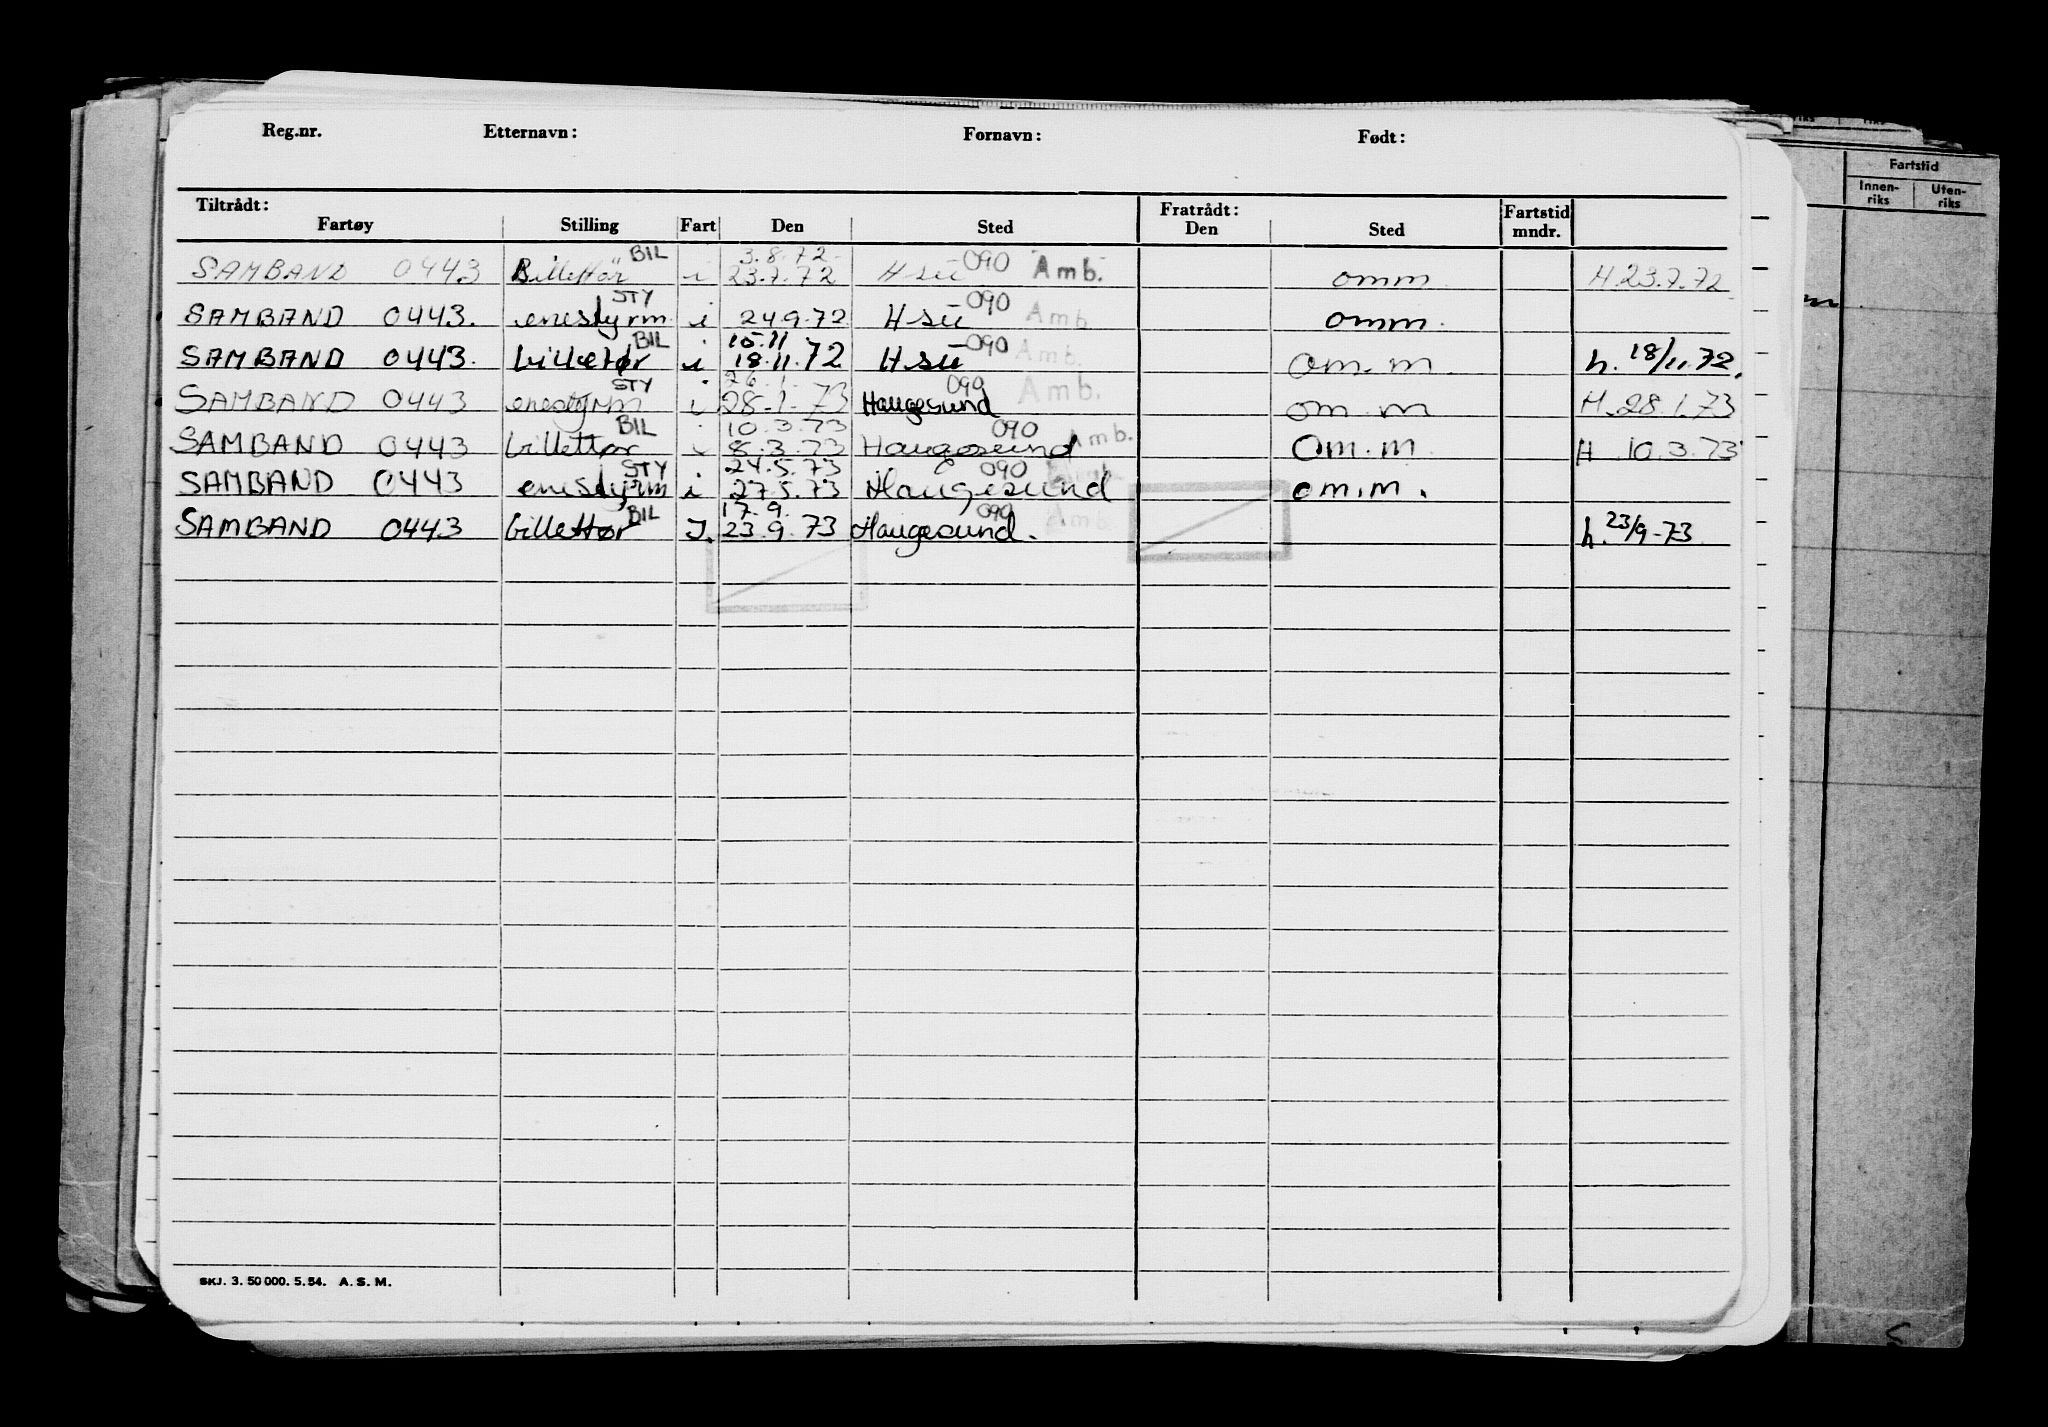 Reg.nr. Etternavn: Fornavn: Født:
Tiltrådt: Fratrådt:
Fartøy Stilling Fart Den Sted Den Sted Fartstid mndr.
BIL 3.8.72
SAMBAND 0443 Billettör i 23.7.72 H su 090 Amb. omm H.23.7.72
STY
SAMBAND 0443. enestyrm. i 24.9.72 H su 090 Amb omm.
BIL i 15.11
SAMBAND 0443. billetør i 18.11.72 H su 090 Amb. om.m. h. 18/11.72.
STY 26.1.
SAMBAND 0443 enestyrm i 28-1-73 Haugesund 090 Amb. om.m H.28.1.73
BIL 10.3.73
SAMBAND 0443 billettør i 8.3.73 Haugesund 090 Amb. om.m H 10.3.73
STY 24.5.73
SAMBAND 0443 enestyrm i 27.5.73 Haugesund 090 om.m.
BIL 17.9.
SAMBAND 0443 billettør I. 23.9.73 Haugesund. 090 Amb. h. 23/9-73
SKJ. 3. 50 000. 5. 54. A. S. M.
Fartstid
Innen-riks Uten-riks